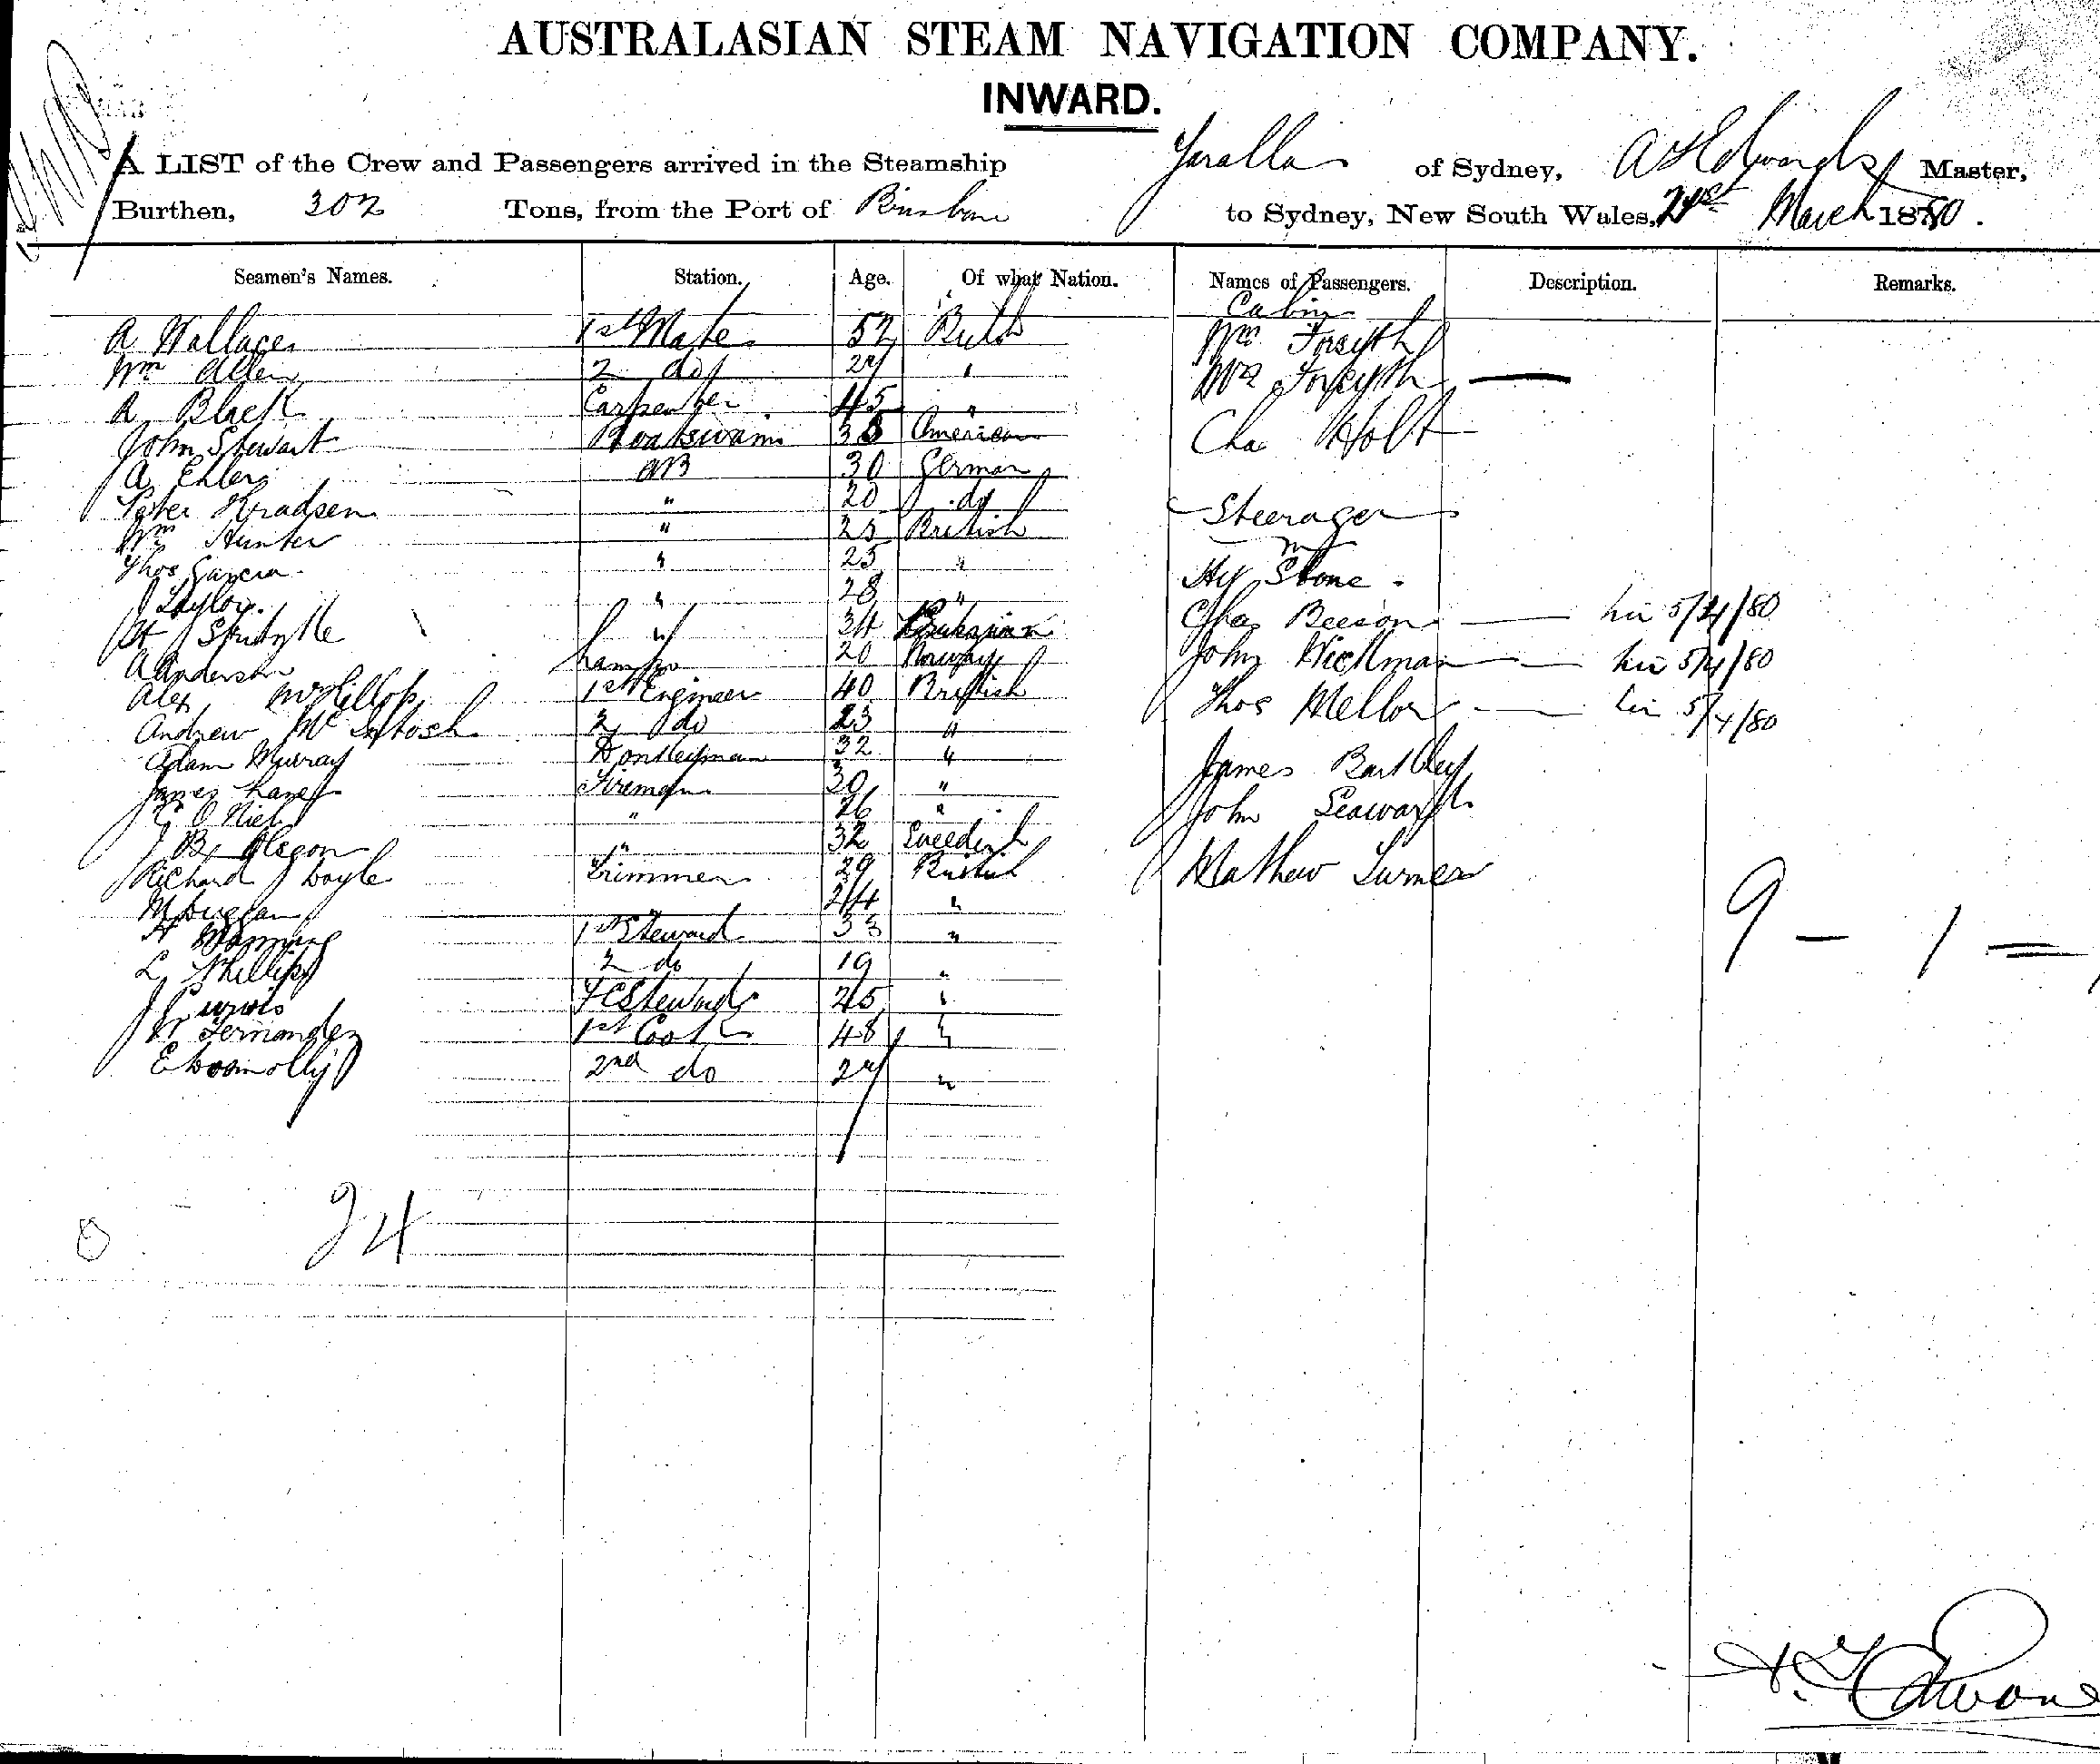 AUSTRALASIAN STEAM NAVIGATION COMPANY.
INWARD.
A LIST of the Crew and Passengers arrived in the Steamship Yaralla of Sydney, Edwards Master,
Burthen, 302 Tons, from the Port of Brisbane to Sydney, New South Wales, March 1880.
Seamen's Names. Station. Age. Of what Nation. Names of Passengers. Description. Remarks.
Cabin
A Wallace 1st Mate 52 British
Wm Allen 2 do "
A Black Carpenter 45 "
John Stewart Boatswain American
A Ehlers AB 30 German
Peter Knudsen " 20 do
Wm Hunter " 25 British
Thos Garcia " 25 "
J Taylor " 28 "
H " 34
A Anderson 20 Norway
Alex McKillop 1st Engineer 40 British
Andrew McIntosh 2 do 23 "
Adam Murray Donkeyman 32 "
James Lane Fireman 30 "
" 26 "
" 32 Sweedish
Richard Doyle Trimmer 29 British
M Duggan 24 "
H Manning 1st Steward 33 "
L Phillips 2 do 19 "
J Purvis FC Steward 45 "
Fernandez 1st Cook 48 "
E Connolly 2nd do "
24
Mr Forsyth
Mrs Forsyth
Cha Holt
Steerage
Hy Stone
Chas Beeson 5/4/80
John Wickman 5/4/80
Thos Mellor 5/4/80
James Bartley
John Seaward
Mathew Turner
9 - 1 =